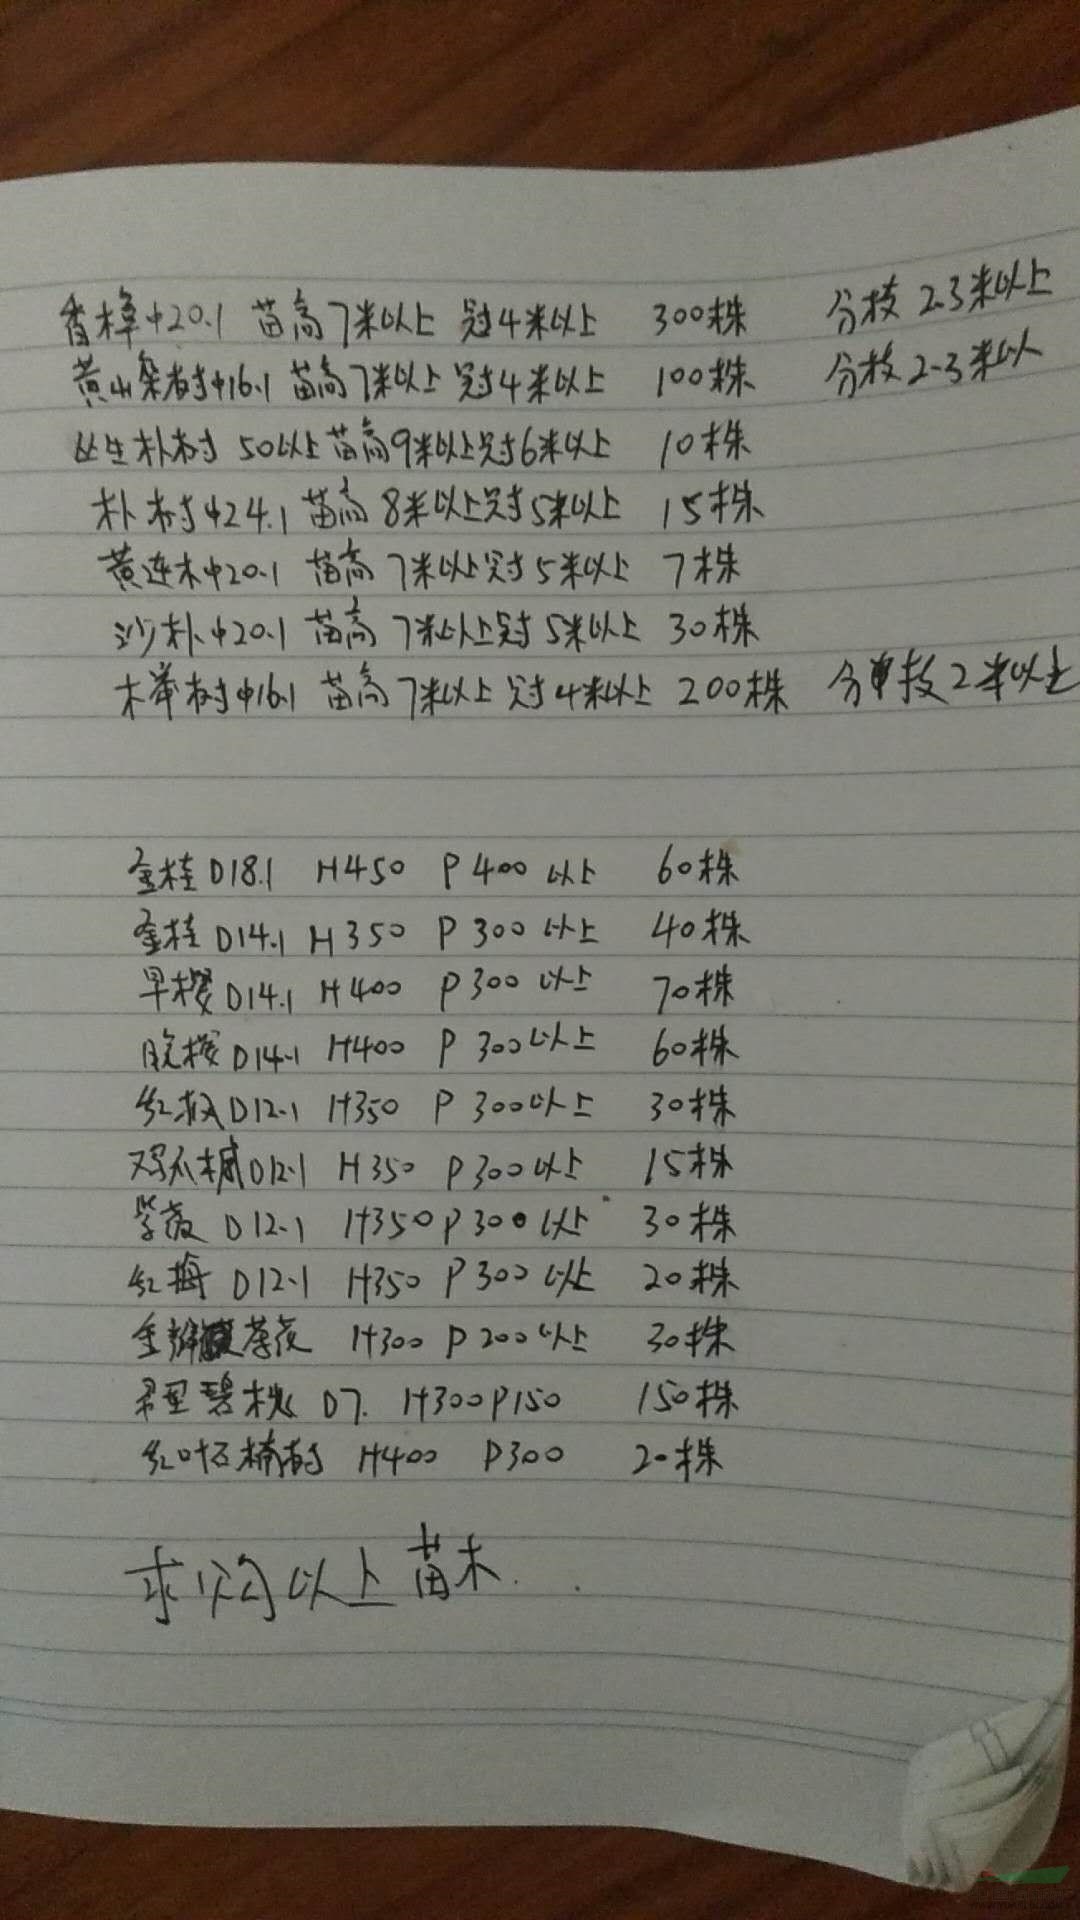 香樟φ20.1 苗高7米以上 冠4米以上 300株 分枝2.3米以上
黄山栾树φ16.1 苗高7米以上 冠4米以上 100株 分枝2-3米以
丛生朴树 50以上苗高9米以上冠6米以上 10株
朴树φ24.1 苗高8米以上冠5米以上 15株
黄连木φ20.1 苗高7米以上冠5米以上 7株
沙朴φ20.1 苗高7米以上冠5米以上 30株
木举树φ16.1 苗高7米以上冠4米以上 200株 分枝2米以上
金桂D18.1 H450 P400以上 60株
金桂D14.1 H350 P300以上 40株
早樱D14.1 H400 P300以上 70株
晚樱D14.1 H400 P300以上 60株
红枫D12.1 H350 P300以上 30株
鸡爪槭D12.1 H350 P300以上 15株
紫薇 D12.1 H350P300以上 30株
红梅 D12.1 H350 P300以上 20株
H300 P200以上 30株
碧桃 D7. H300P150 150株
红叶石楠树 H400 P300 20株
求购以上苗木.